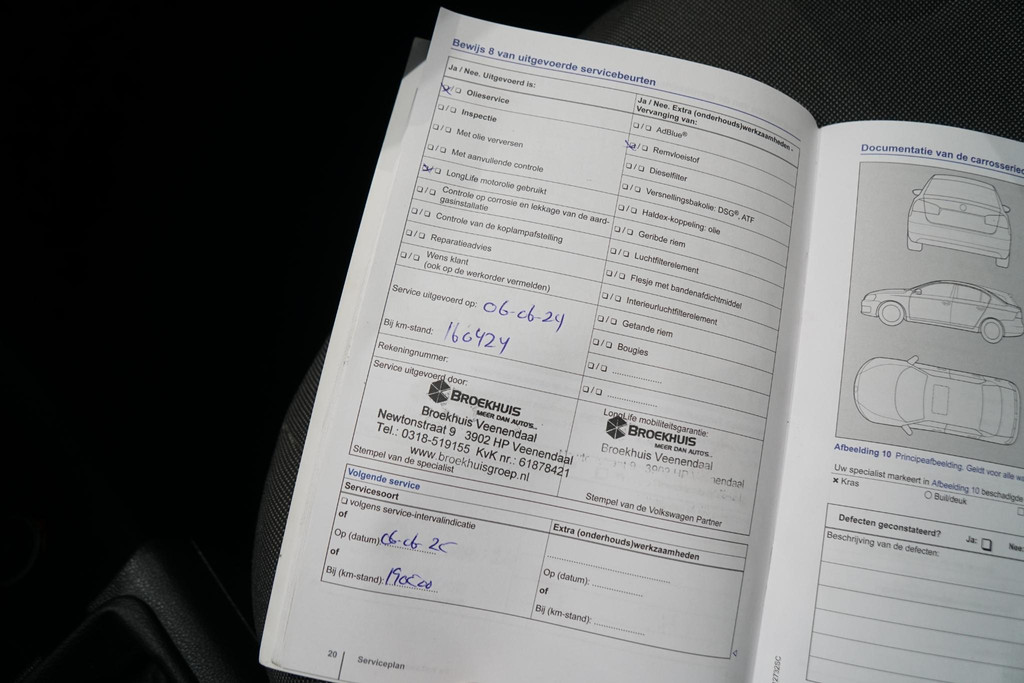 Bewijs 8 van uitgevoerde servicebeurten
Ja / Nee. Uitgevoerd is:
Olieservice
Inspectie
Met olie verversen
Met aanvullende controle
LongLife motorolie gebruikt
Controle op corrosie en lekkage van de aard-
gasinstallatie
Controle van de koplampafstelling
Reparatieadvies
Wens klant
(ook op de werkorder vermelden)
Service uitgevoerd op: 06-06-24
Bij km-stand: 160424
Rekeningnummer:
Service uitgevoerd door:
BROEKHUIS
MEER DAN AUTO'S..
Broekhuis Veenendaal
Newtonstraat 9 3902 HP Veenendaal
Tel.: 0318-519155 KvK nr.: 61878421
www.broekhuisgroep.nl
Stempel van de specialist
Ja / Nee. Extra (onderhouds)werkzaamheden -
Vervanging van:
AdBlue®
Remvloeistof
Dieselfilter
Versnellingsbakolie: DSG®, ATF
Haldex-koppeling: olie
Geribde riem
Luchtfilterelement
Flesje met bandenafdichtmiddel
Interieurluchtfilterelement
Getande riem
Bougies
LongLife mobiliteitsgarantie:
BROEKHUIS
MEER DAN AUTO'S..
Broekhuis Veenendaal
3902 HP Veenendaal
Stempel van de Volkswagen Partner
Volgende service
Servicesoort
volgens service-intervalindicatie
of
Op (datum): 06-06-25
of
Bij (km-stand): 190000
Extra (onderhouds)werkzaamheden
Op (datum):
of
Bij (km-stand):
20 Serviceplan
Documentatie van de carrosserie
Afbeelding 10 Principeafbeelding. Geldt voor alle
Uw specialist markeert in Afbeelding 10 beschadigde
× Kras
Buil/deuk
Defecten geconstateerd? Ja: Nee
Beschrijving van de defecten: